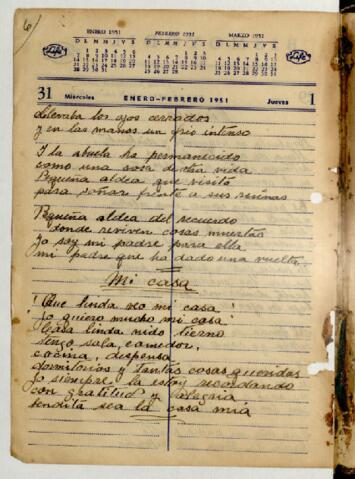 6
Life
ENERO 1951
FEBRERO 1951
MARZO 1951
Life
D L M M J V S
D L M M J V S
D L M M J V S
31 Miércoles ENERO-FEBRERO 1951 Jueves 1
llevaba los ojos cerrados
y en las manos un frio intenso
Y la abuela ha permanecido
como una cosa de otra vida
Pequeña aldea que visito
para soñar frente a sus ruinas
Pequeña aldea del recuerdo
donde reviven cosas muertas
Yo soy mi padre para ella
mi padre que ha dado una vuelta
Mi casa
¡Que linda veo mi casa!
Yo quiero mucho mi casa!
Casa linda nido tierno
tengo sala, comedor,
cocina, despensa
dormitorios y tantas cosas queridas
Yo siempre la estoy recordando
con gratitud y alegria
bendita sea la casa mia